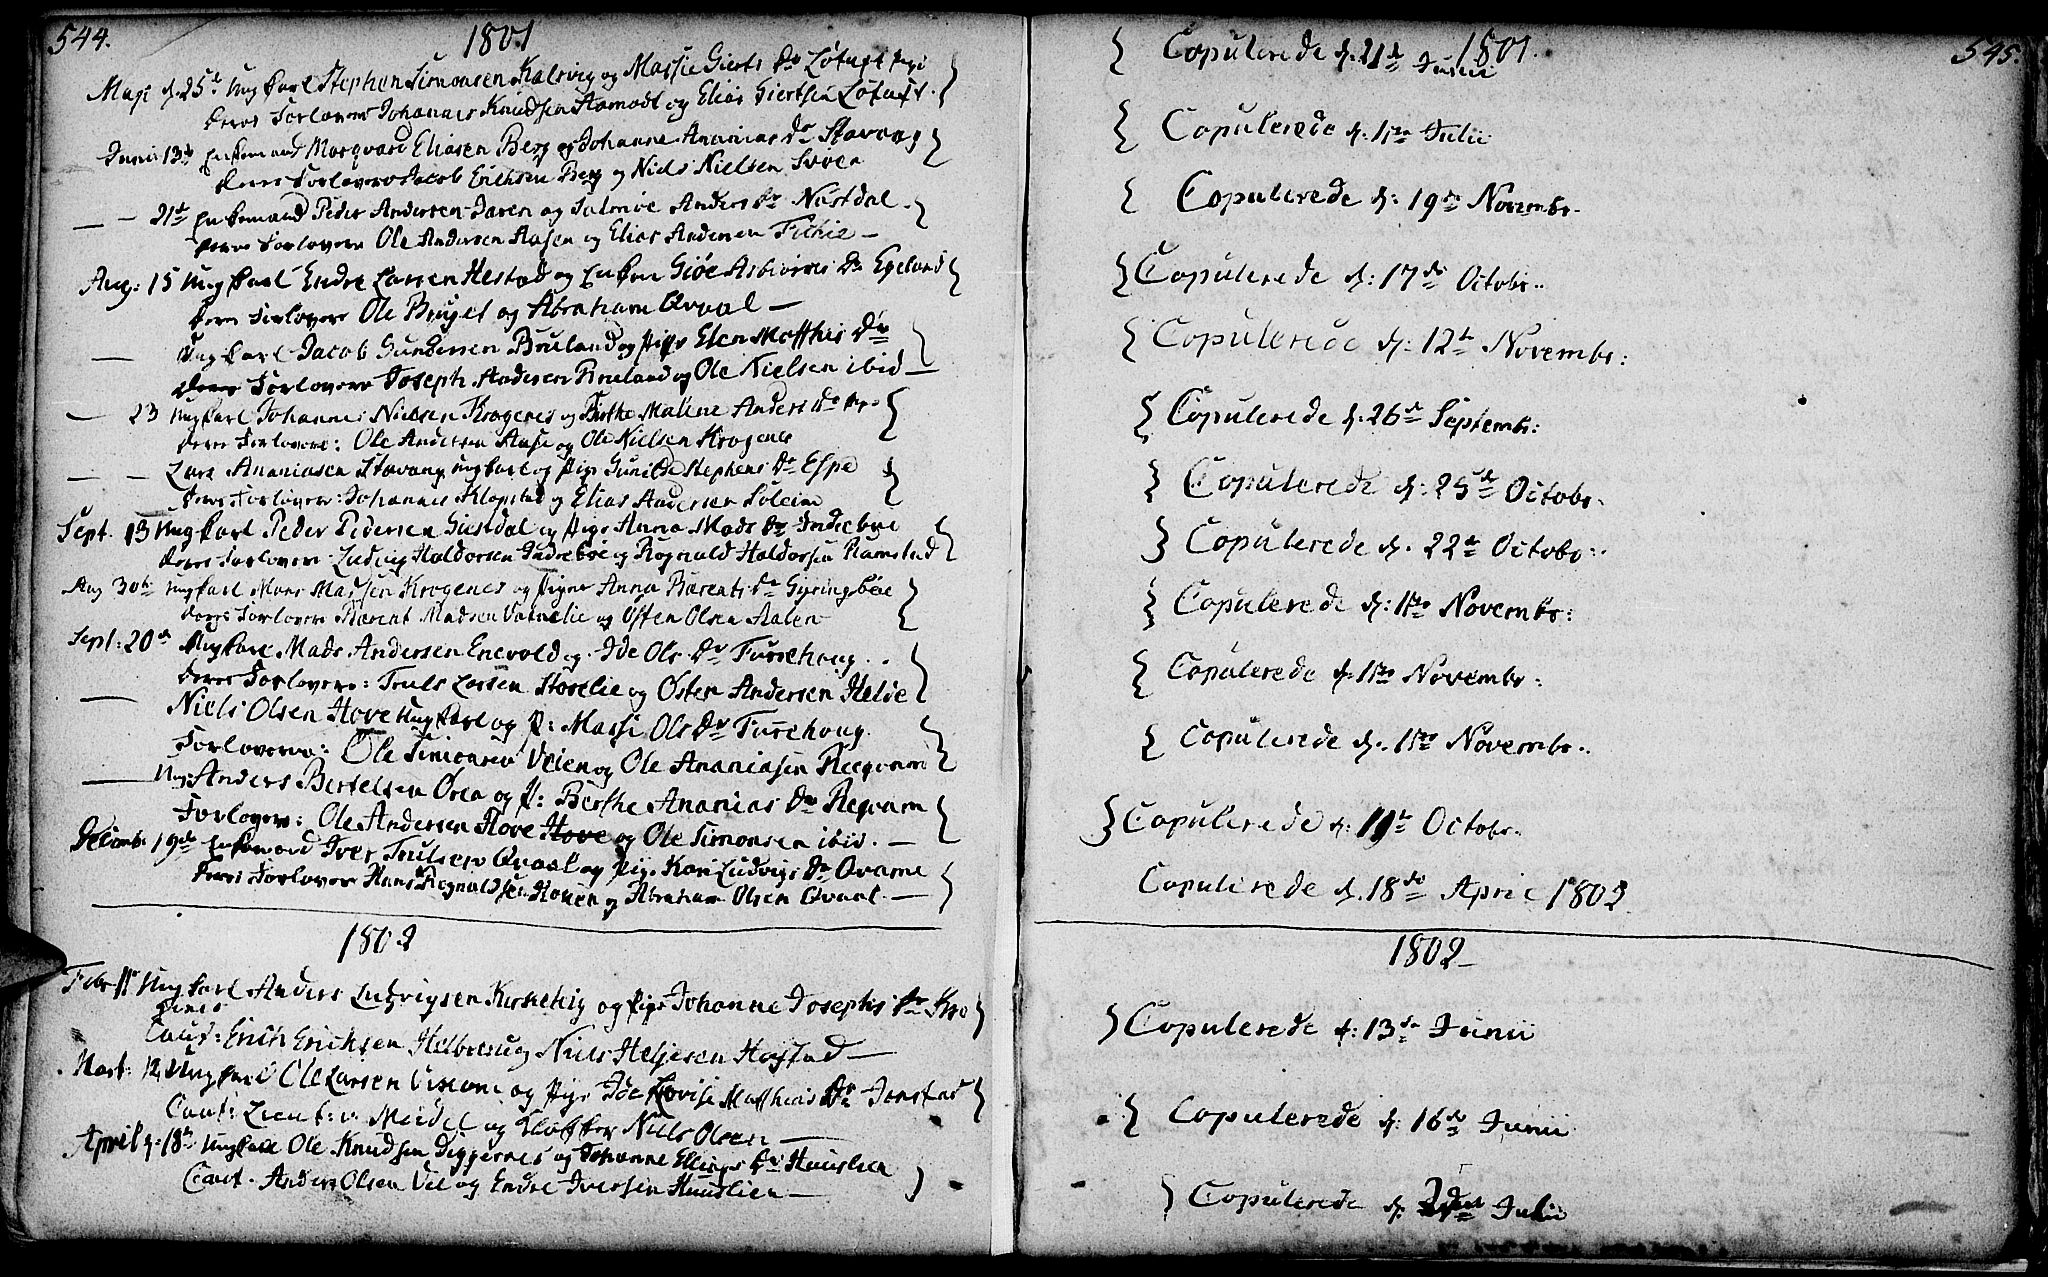 544.
1801
Maji d. 25de Ungkarl Stephen Simonsen Kalsvig og Massie Gierts Dr Løtuft
deres Forlovere Johannes Knudsen Aamodt og Elias Giertsen Løtuft.
Junii 13de Enkemand Marqvard Eliasen Berg og Johanne Ananias Dr Stavang
deres Forlovere Jacob Erichsen Berg og Niels Nielsen
— 21de Enkemand Peder Andersen og Andersdr Nøstdal
deres Forlovere Ole Andersen Aasen og Elias Andersen
Aug: 15 Ungkarl Endre Larsen Hestad og Enken Giøe Asbiørns Dr Egeland
deres Forlovere Ole og Abraham Qvaal —
— Ungkarl Jacob Gundersen Bruland og Pige Elen Matthis Dr
deres Forlovere Joseph Andersen Bruland og Ole Nielsen ibid —
— 23 Ungkarl Johannes Nielsen Krogenes og Birthe Malene Anders Dr
deres Forlovere: Ole Andersen Aase og Ole Nielsen Krogenes
— — Lars Ananiasen Stavang Ungkarl og Pige Gunilde Stephens Dr Espe
deres Forlovere: Johannes Klopstad og Elias Andersen Soleim
Sept. 13 Ungkarl Peder Pedersen Giestdal og Pige Anna Mads Dr Indrebøe
deres Forlovere: Ludvig Haldorsen Indrebøe og Rognald Haldorsen Ramstad
Aug 30te Ungkarl Mons Madsen Krogenes og Pigen Anna Bærents Dr Gyringbøe
deres Forlovere Bærent Madsen Vatnelie og Østen Olsen Aalen
Sept: 20de Ungkarl Mads Andersen Enevold og Ide Ols Dr Furrehoug
deres Forlovere: Truls Larsen og Østen Andersen Helde
— Niels Olsen Hove Ungkarl og P: Massi Ols Dr Furrehoug
Forlovere: Ole Simonsen Veien og Ole Ananiasen
— Ung: Anders Bertelsen og P: Berthe Ananias Dr
Forlovere: Ole Andersen Hove Hove og Ole Simonsen ibid. —
Decemb. 19de Enkemand Iver Trulsen Qvaal og Pige Kari Ludvigs Dr Qvame
deres Forlovere Hans Rognaldsen Hovén og Abraham Olsen Qvaal. —
1802
Febr 11te Ungkarl Anders Ludvigsen Kirketeig og Pige Johanne Josephs Dr Kro
genes
Caut: Erich Erichsen og Niels Heljesen Høystad —
Mart: 12 Ungkarl Ole Larsen og Pige Ide Lovise Matthias Dr Jonstad
Caut: Lieut: v: Meidel og Klokker Niels Olsen —
April d. 18de Ungkarl Ole Knudsen Diggernes og Johanne Ellings Dr Hauslien
Caut. Anders Olsen Vie og Endre Iversen Huuslien —
1801.
545.
Copulerede d. 21de Junii
Copulerede d: 11te Julii
Copulerede d: 19de Novembr.
Copulerede d: 17de Octobr.
Copulerede d: 12te Novembr:
Copulerede d. 26de Septembr:
Copulerede d: 25de Octobr.
Copulerede d. 22de Octobr.
Copulerede d: 11te Novembr:
Copulerede d. 11te Novembr.
Copulerede d. 11te Novembr.
Copulerede d: 11te Octobr.
Copulerede d. 18de April 1802
1802
Copulerede d: 13de Junii
Copulerede d: 16de Junii
Copulerede d. 2den Julii